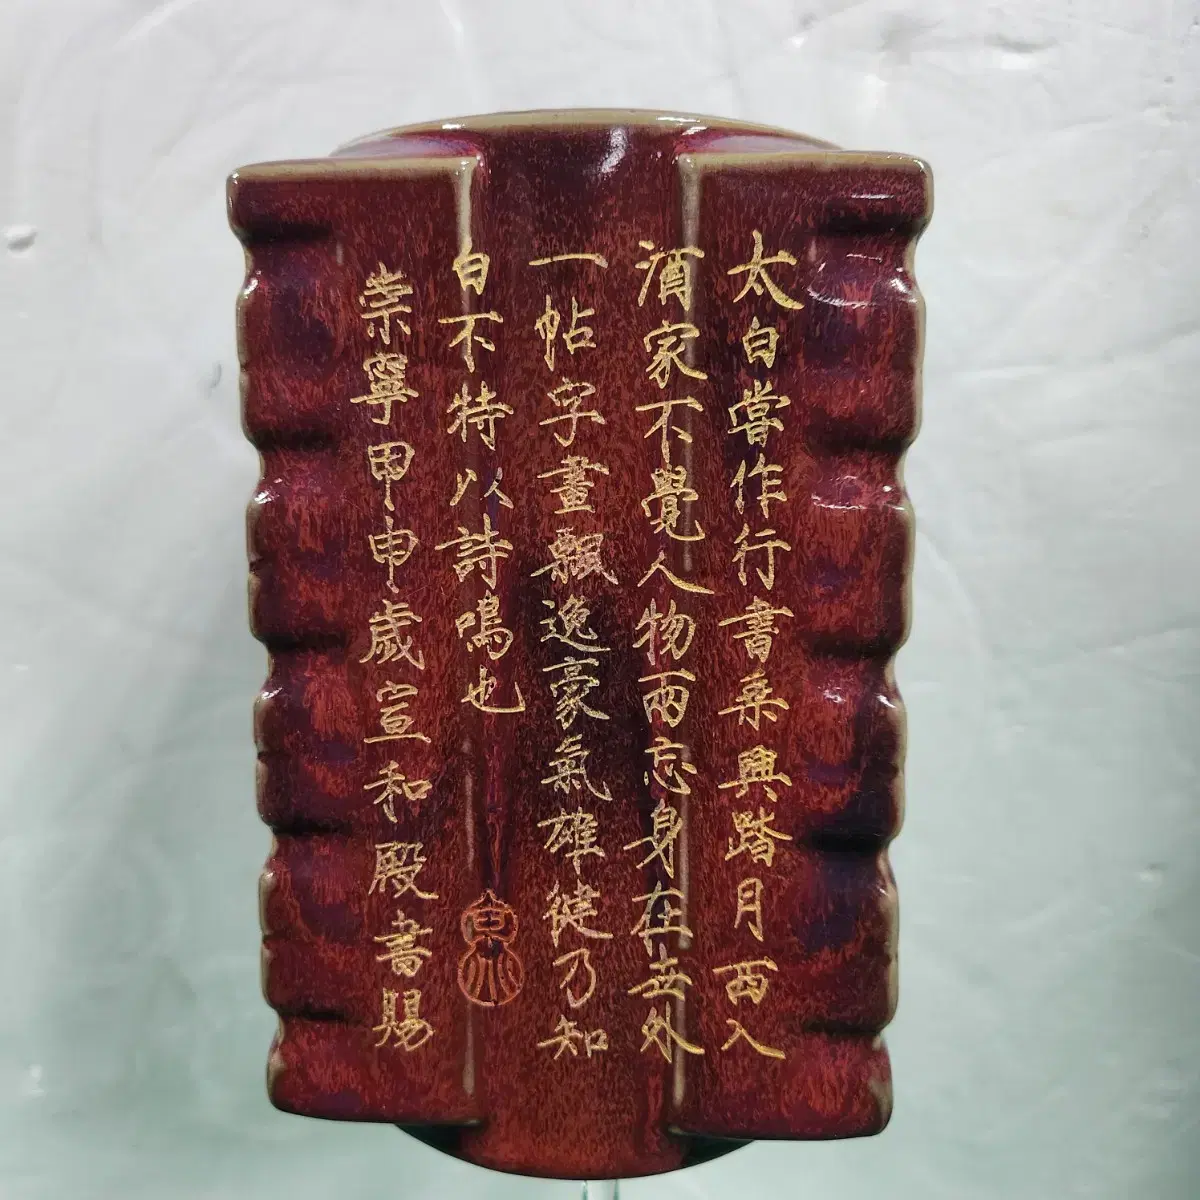 太白嘗作行書乘興踏月西入
酒家不覺人物兩忘身在世外
一帖字畫飄逸豪氣雄健乃知
白不特以詩鳴也
崇寧甲申歲宣和殿書賜